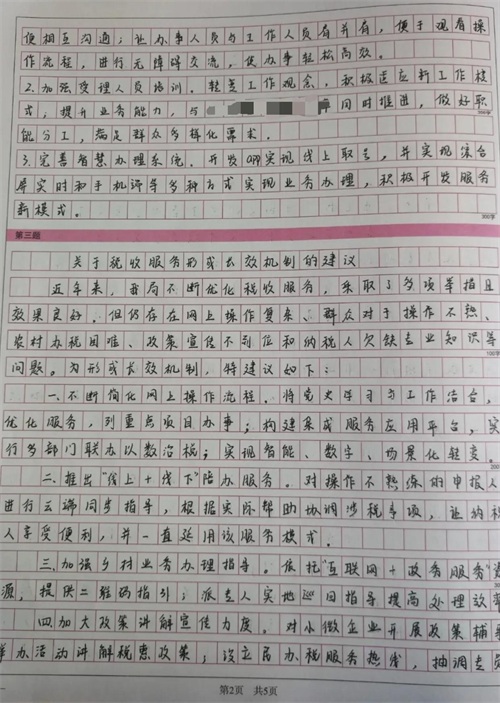 便相互沟通；让办事人员与工作人员肩并肩，便于观看操
作流程，进行无障碍交流，使办事轻松高效。
2.加强受理人员培训。转变工作观念，积极适应新工作模
式；提升业务能力，与 同时推进，做好职
能分工，满足群众多样化需求。
3.完善智慧办理系统。开发app实现线上取号，并实现综合
屏实时和手机评等多种方式实现业务办理，积极开发服务
新模式。
300字
第三题
关于税收服务形成长效机制的建议
近年来，我局不断优化税收服务，采取了多项举措且
效果良好。但仍存在网上操作复杂、群众对于操作不熟、
农村办税困难、政策宣传不到位和纳税人欠缺专业知识等
100字
问题。为形成长效机制，特建议如下：
一、不断简化网上操作流程。将党史学习与工作结合，
优化服务，列重点项目办事；构建集成服务应用平台，实
行多部门联办以数治税；实现智能、数字、场景化转变。
200
二、推出“线上+线下”陪办服务。对操作不熟练的申报人
进行云端同步指导，根据实际帮助协调涉税事项，让纳税
人享受便利，并一直延用该服务模式。
三.加强乡村业务办理指导。依托“互联网+政务服务”资
源，提供二维码指引；派专人实地巡回指导提高处理效率
四.加大政策讲解宣传力度。对小微企业开展政策辅
办活动讲解税惠政策；设立民办税服务热线，抽调专员
第2页 共5页